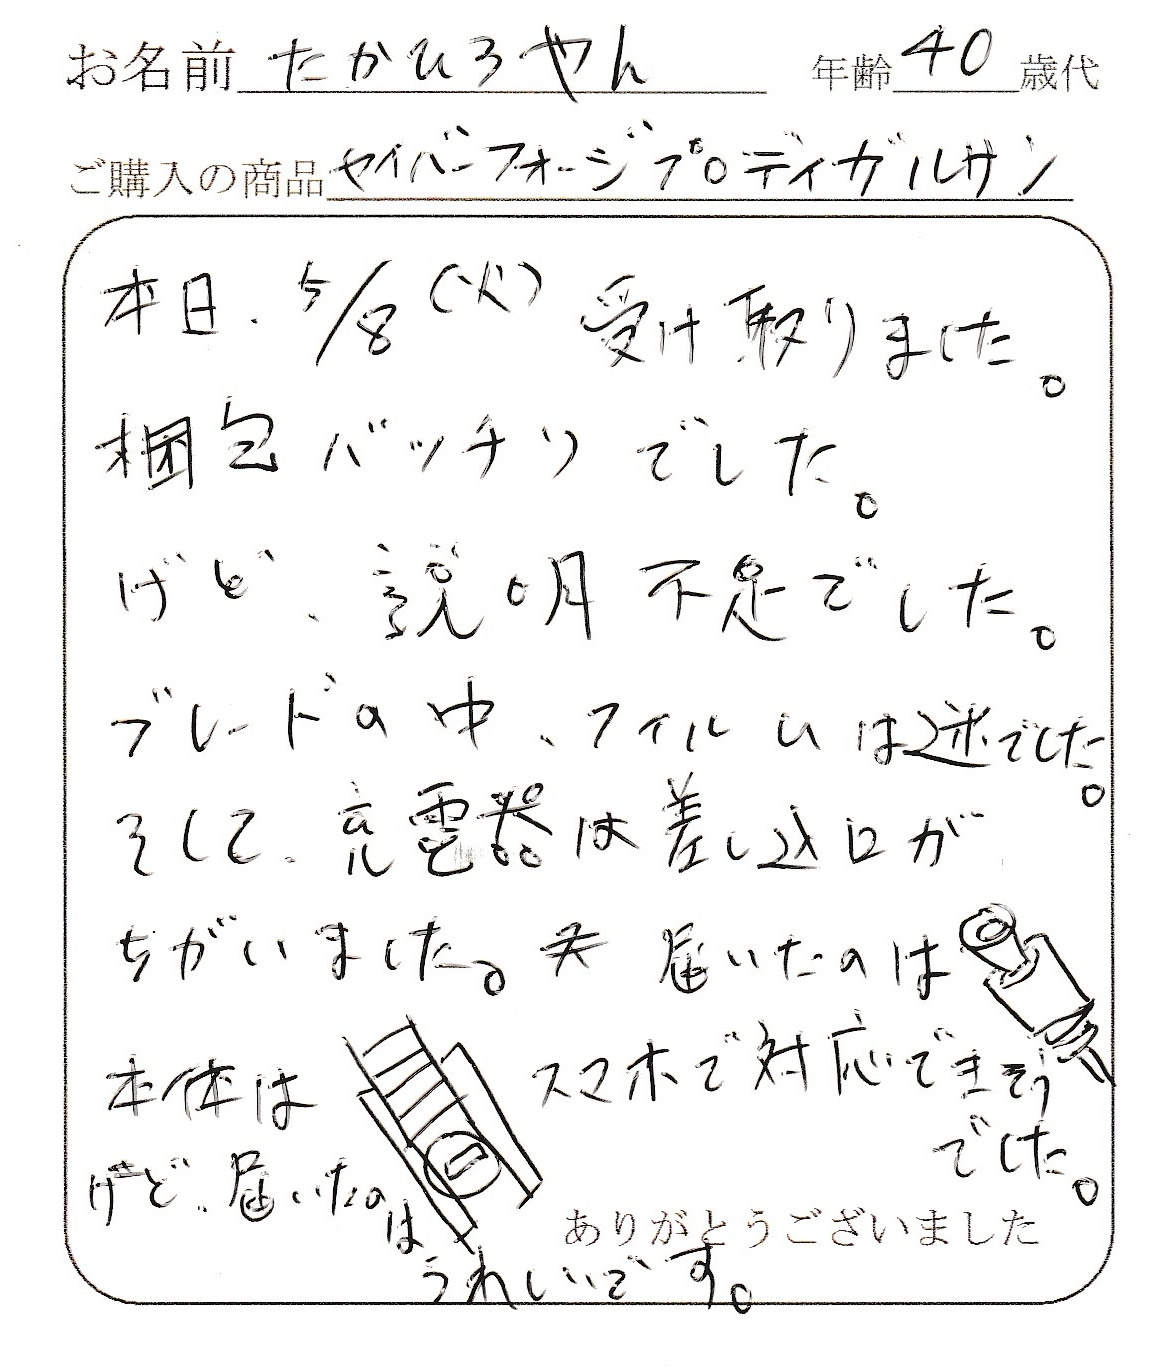 お名前 たかひろやん 年齢 40 歳代
ご購入の商品 セイバーフォージプロディガルサン
本日、5/8(火) 受け取りました。
梱包バッチリでした。
けど、説明不足でした。
ブレードの中、フィルムは逆でした。
そして、充電器は差し込口が
ちがいました。 届いたのは
本体は スマホで対応できそう
でした。
けど、届いたのは
ありがとうございました
うれしいです。